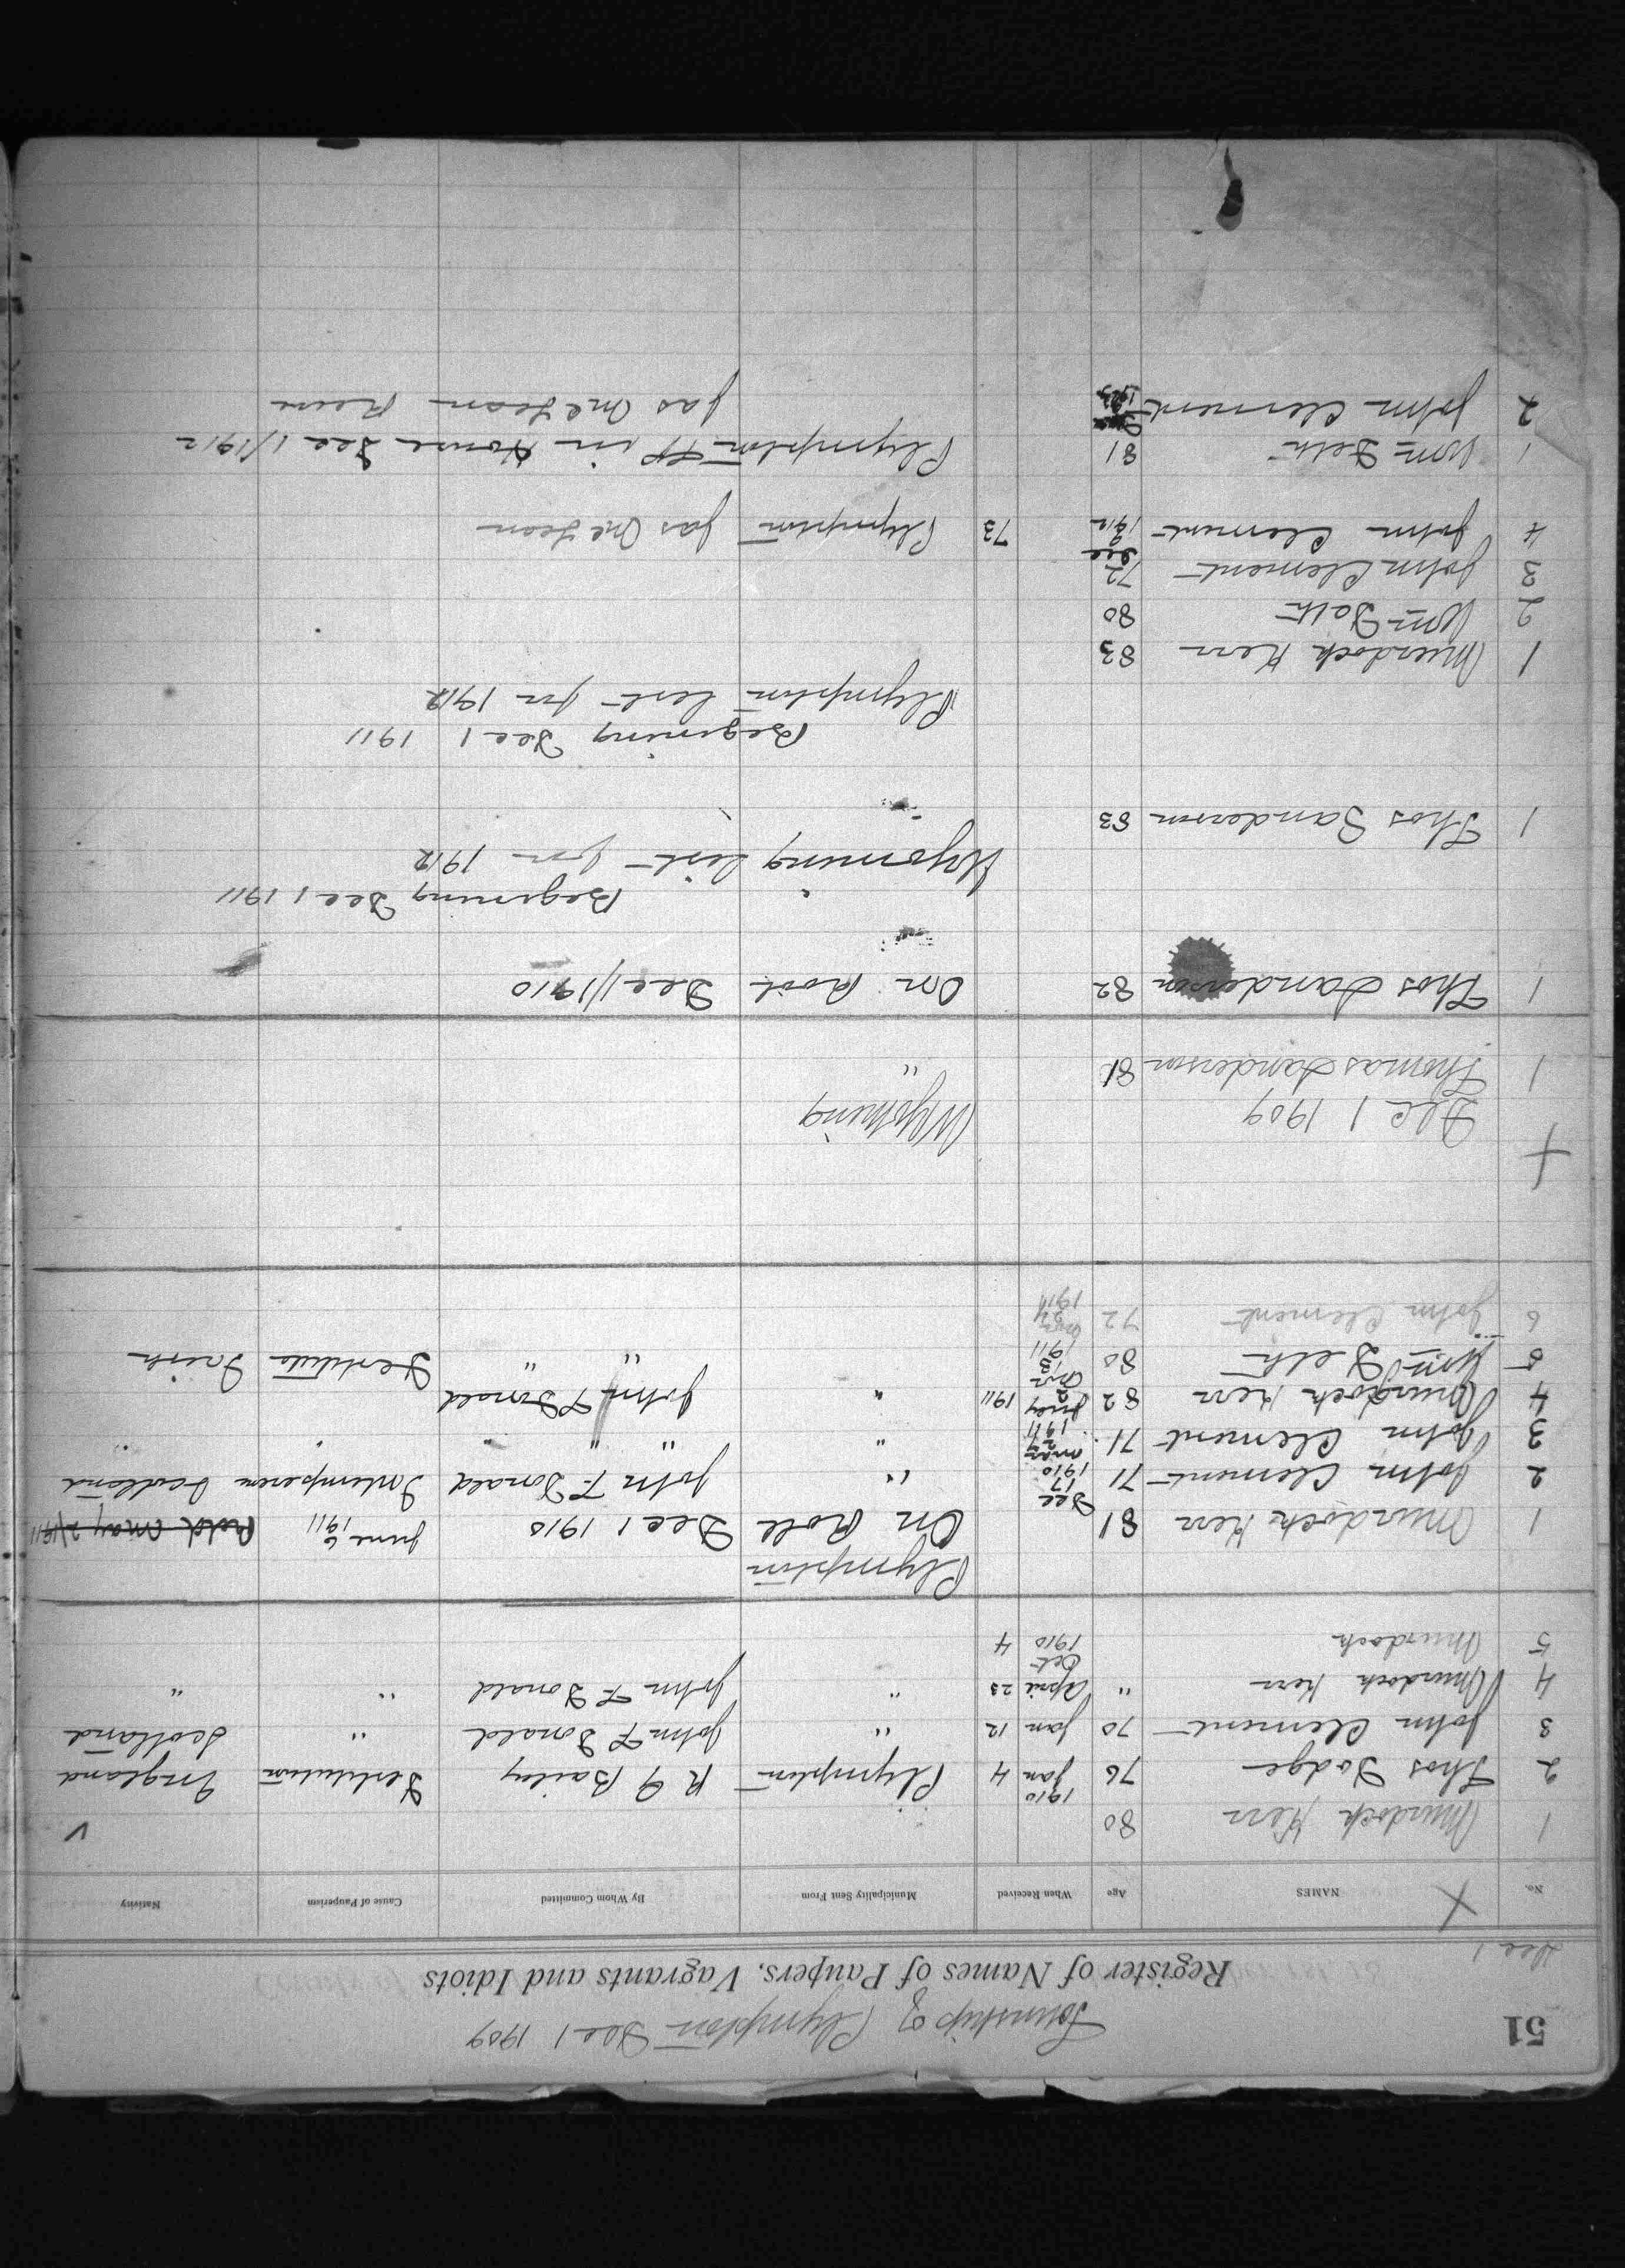 51
Township of Plympton Dec 1 1909
Register of Names of Paupers, Vagrants and Idiots
Dec 1
No. NAMES Age When Received Municipality Sent From By Whom Committed Cause of Pauperism Nativity
X
1 Murdoch Kerr 80 V
2 Thos Dodge 76 1910 Jan 4 Plympton R G Bailey Destitution England
3 John Clement 70 Jan 12 " John F Donald " Scotland
4 Murdoch Kerr " April 23 " John F Donald " "
5 Murdoch Oct 1910 4
Plympton
1 Murdoch Kerr 81 On Roll Dec 1 1910 June 6 1911 May 2/1911
2 John Clement 71 Dec 17 1910 " John F Donald Intemperen Scotland
3 John Clement 71 May 27 1911 " " " "
4 Murdoch Kerr 82 July 2 1911 " John F Donald
5 Wm Delk 80 1911 " " Destitute Irish
6 John Clement 72 1911
X
Dec 1 1909 Wyoming
1 Thomas Sanderson 81 "
1 Thos Sanderson 82 On Roll Dec 1/1910
Begining Dec 1 1911
Wyoming List for 1912
1 Thos Sanderson 83
Begining Dec 1 1911
Plympton List for 1912
1 Murdoch Kerr 83
2 Wm Delk 80
3 John Clement 72
4 John Clement Dec 9 1912 73 Plympton Jas McLean
1 Wm Delk 81 Plympton TP in House Dec 1/1912
2 John Clement Jas McLean Reeve